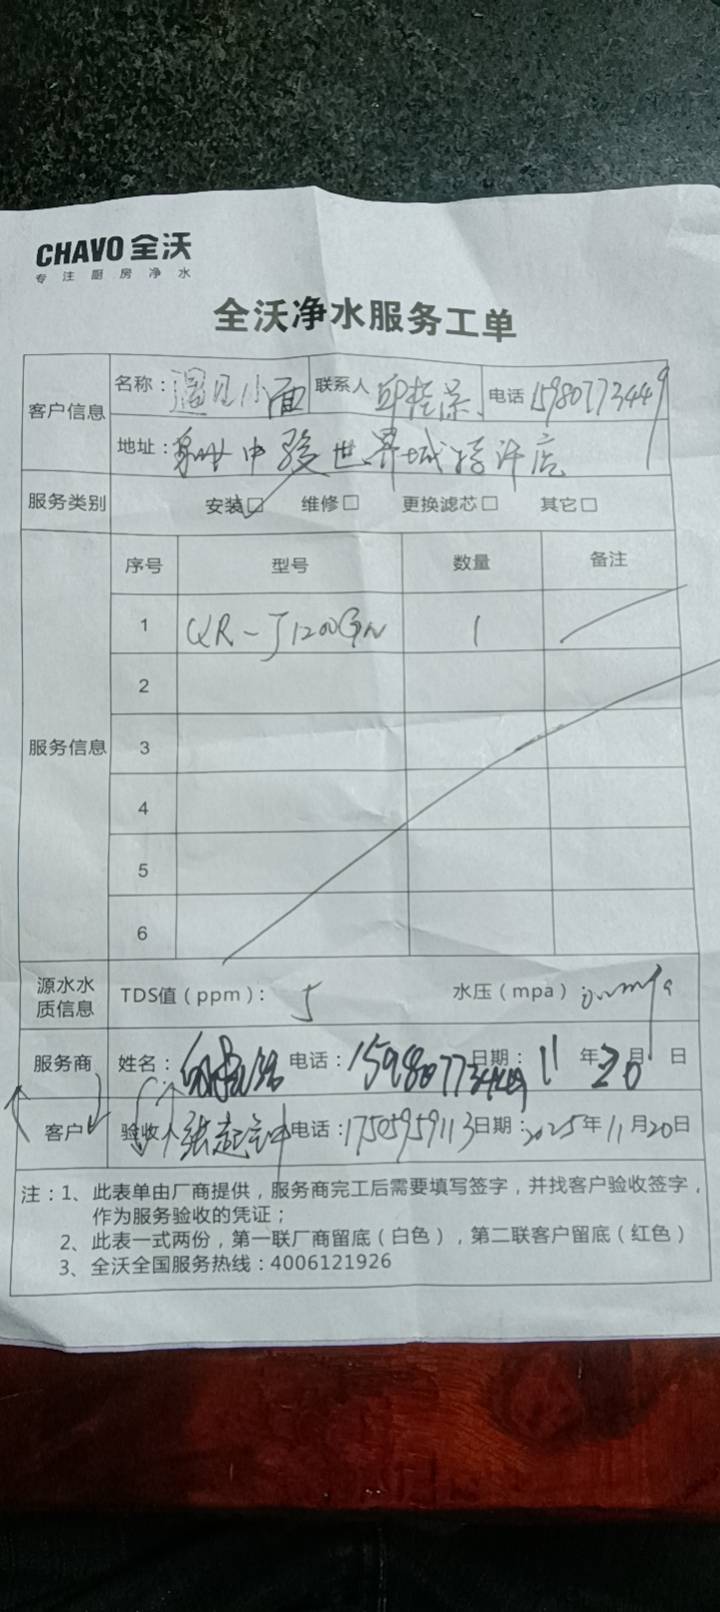 CHAVO 全沃
专注厨房净水
全沃净水服务工单
客户信息 名称：遇见小面 联系人 邱桂 电话 15980773449
地址：泉州中骏世界城特许店
服务类别 安装☑ 维修□ 更换滤芯□ 其它□
服务信息 序号 型号 数量 备注
1 QR-J1200GN 1
2
3
4
5
6
源水水质信息 TDS值（ppm）： 5 水压（mpa）
服务商 姓名： 电话：15980773449 日期： 11 年 20 月 日
客户 验收人 张起 电话：17505959113 日期：2025年11月20日
注：1、此表单由厂商提供，服务商完工后需要填写签字，并找客户验收签字，
作为服务验收的凭证；
2、此表一式两份，第一联厂商留底（白色），第二联客户留底（红色）
3、全沃全国服务热线：4006121926